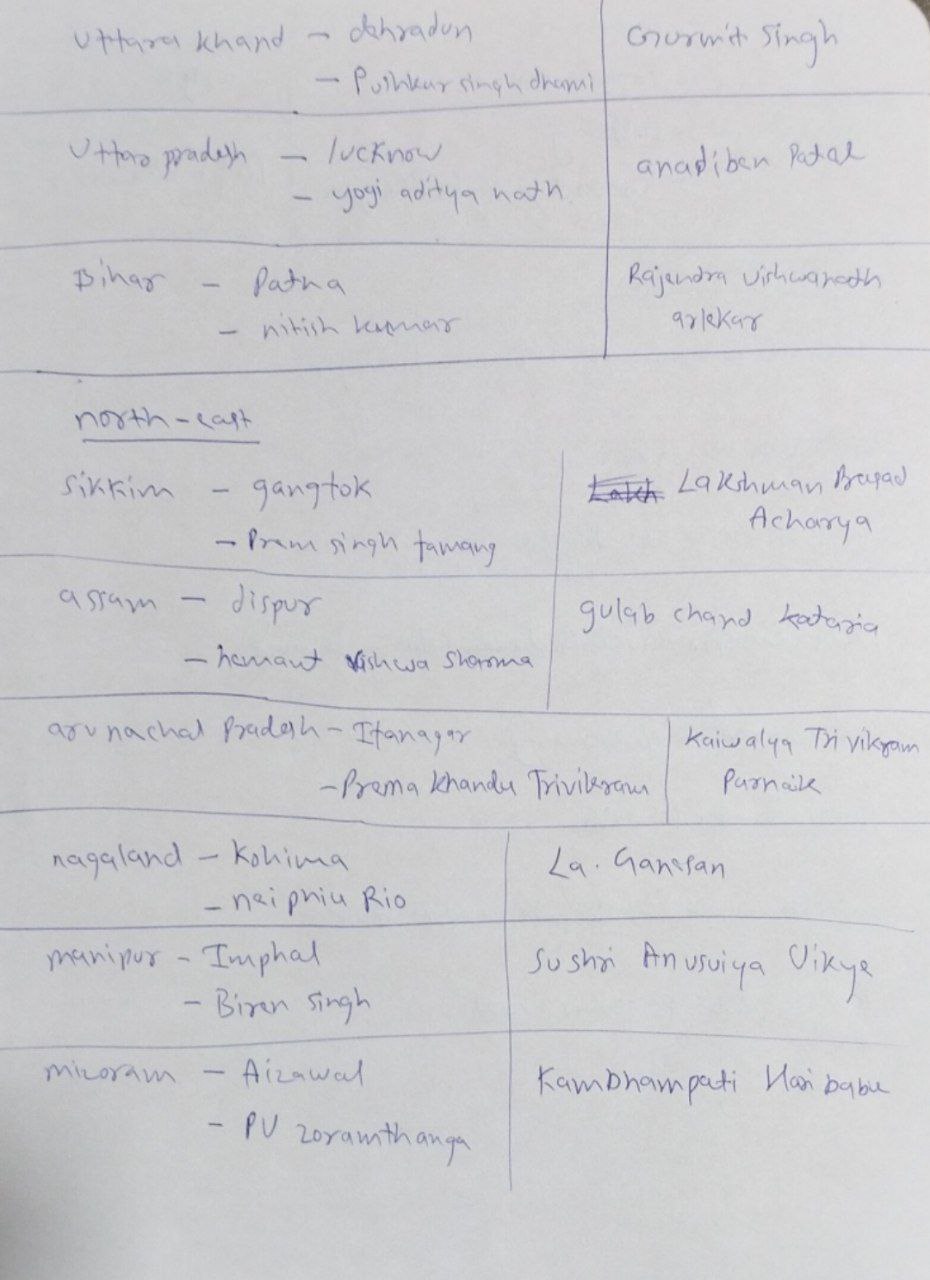 Uttara khand - dehradun
- Pushkar singh dhami
Gurmit Singh
Uttar pradesh - lucknow
- yogi aditya nath
anadiben Patal
Bihar - Patna
- nitish kumar
Rajendra vishwanath
arlekar
north-east
Sikkim - gangtok
- Prem singh tamang
Lakh Lakshman Prasad
Acharya
assam - dispur
- hemant vishwa sharma
gulab chand kataria
arunachal Pradesh - Itanagar
- Prema khandu Trivikram
Kaiwalya Trivikram
Parnaik
nagaland - Kohima
- neiphiu Rio
La. Ganesan
manipur - Imphal
- Biren singh
Sushri Anusuiya Uikye
mizoram - Aizawal
- PU zoramthanga
Kambhampati Hari babu